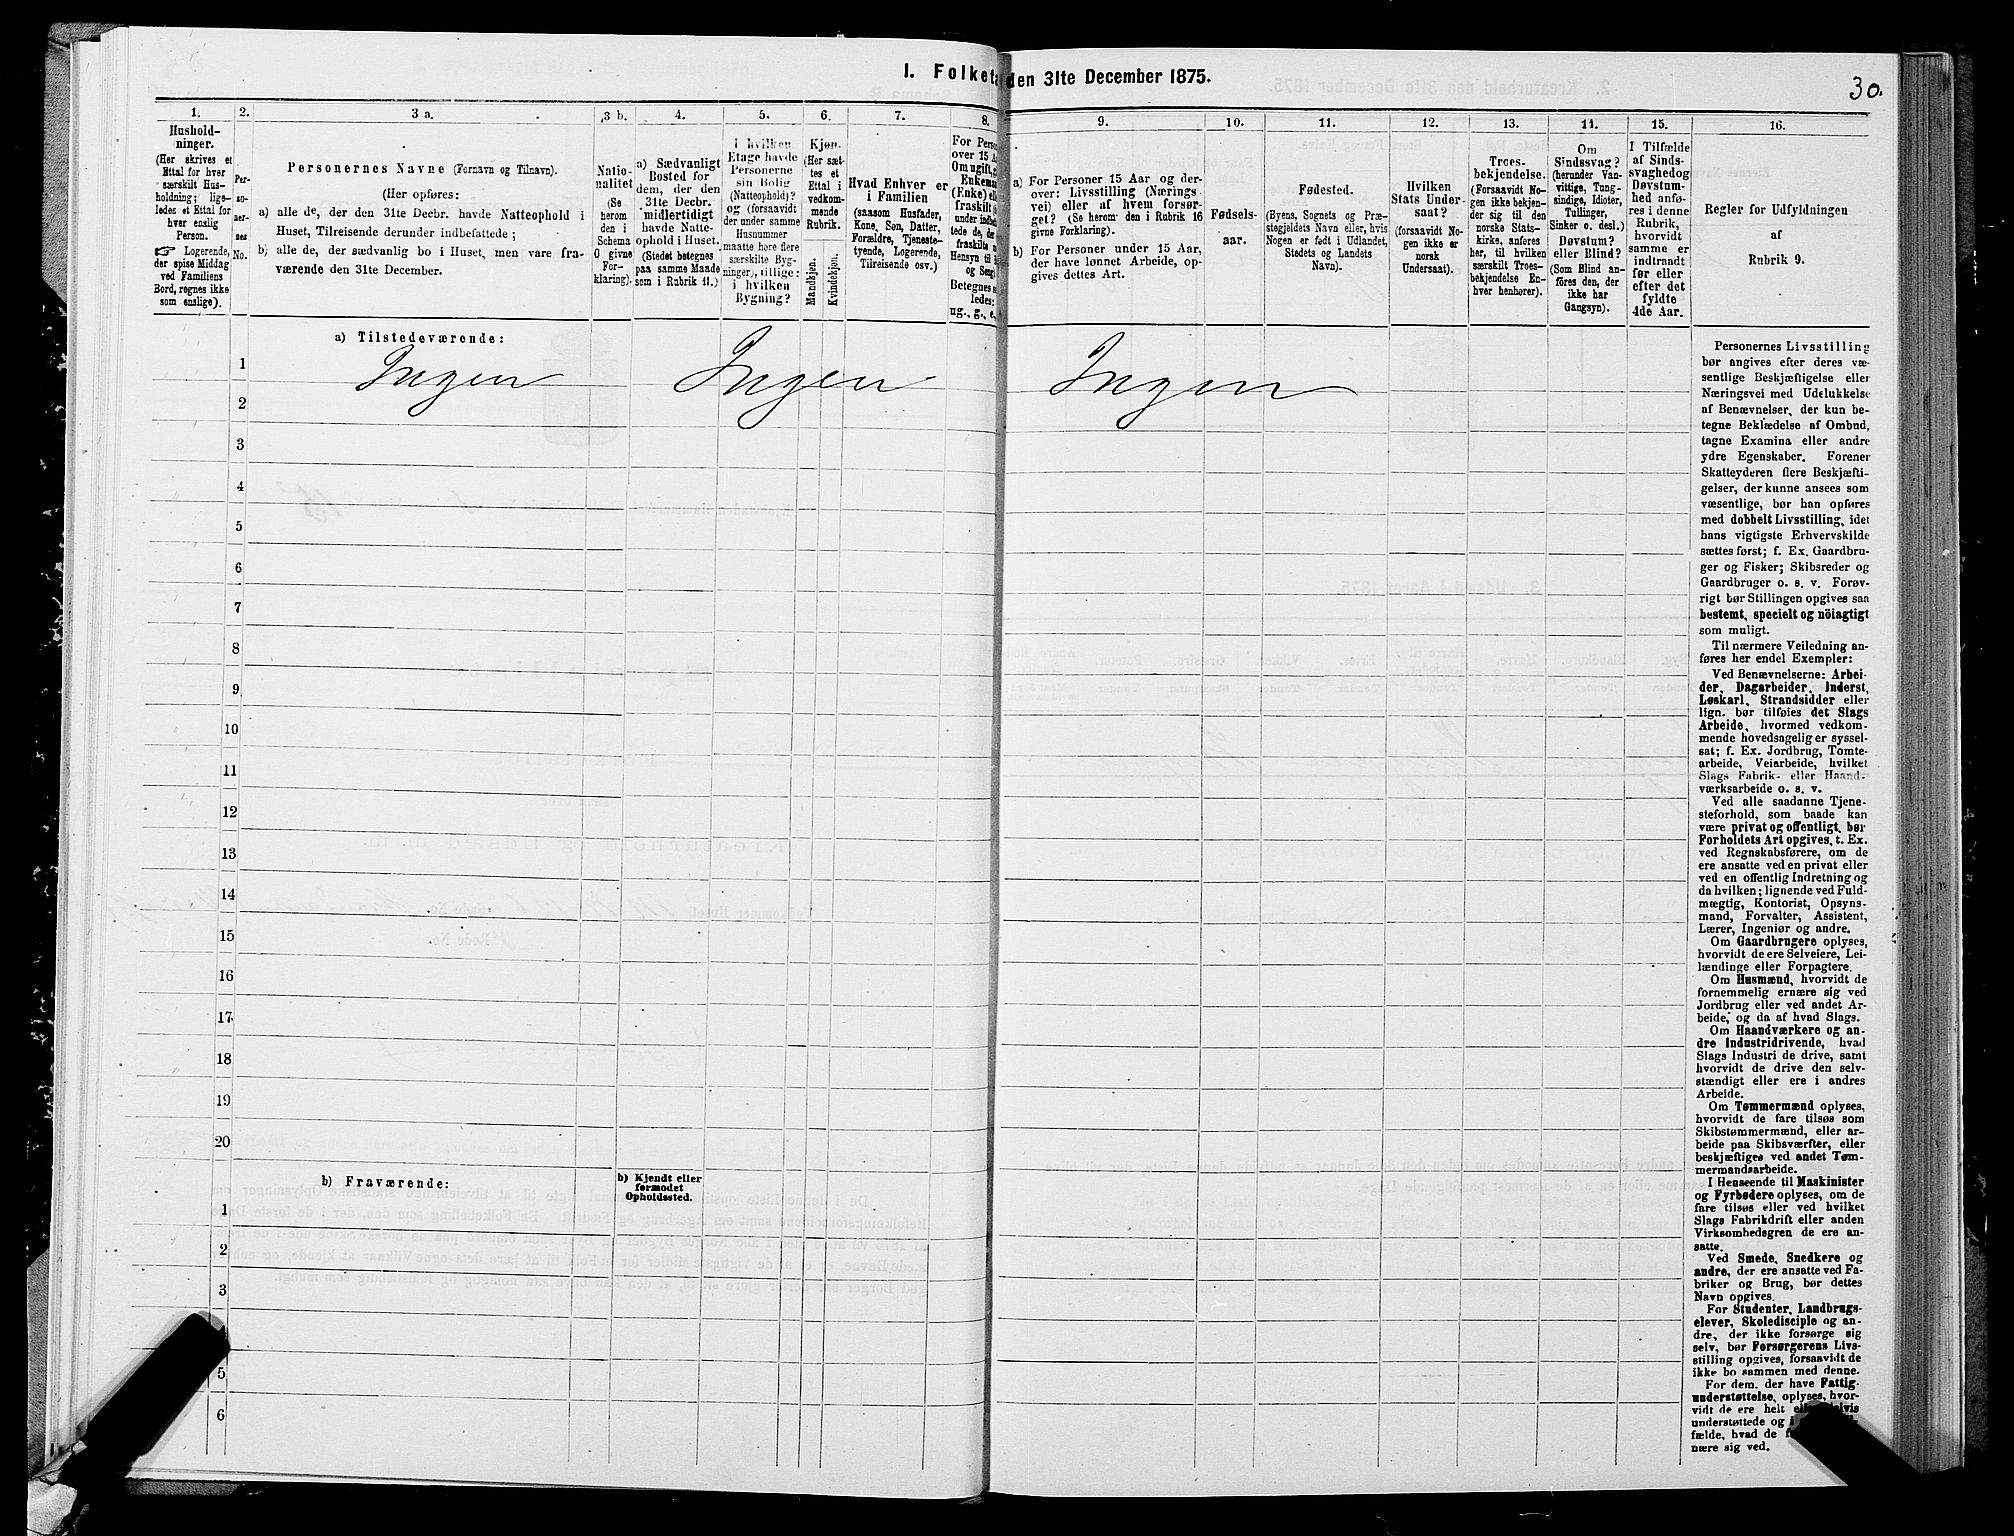 I. Folketa den 31te December 1875.
30.
1.
Hushold-
ninger.
(Her skrives et
Ettal for hver
særskilt Hus-
holdning; lige-
ledes et Ettal for
hver enslig
Person.
☞ Logerende,
der spise Middag
ved Familiens
Bord, regnes ikke
som enslige).
2.
Per-
so-
ner-
nes
No.
3 a.
Personernes Navne (Fornavn og Tilnavn).
(Her opføres:
a) alle de, der den 31te Decbr. havde Natteophold i
Huset, Tilreisende derunder indbefattede;
b) alle de, der sædvanlig bo i Huset, men vare fra-
værende den 31te December.
3 b.
Natio-
nalitet
(Se
herom
den i
Schema
O givne
For-
klaring).
4.
a) Sædvanligt
Bosted for
dem, der den
31te Decbr.
midlertidigt
havde Natte-
ophold i Huset.
(Stedet betegnes
paa samme Maade
som i Rubrik 11.)
5.
I hvilken
Etage havde
Personerne
sin Bolig
(Natteophold)?
og (forsaavidt
der under samme
Husnummer
maatte høre flere
særskilte Byg-
ninger), tillige:
i hvilken
Bygning?
6.
Kjøn.
(Her sæt-
tes et
Ettal i
vedkom-
mende
Rubrik.
Mandkjøn.
Kvindekjøn.
7.
Hvad Enhver er
i Familien
(saasom Husfader,
Kone, Søn, Datter,
Forældre, Tjeneste-
tyende, Logerende,
Tilreisende osv.)
8.
For Pers
over 15 A
Om ugift, g
Enkema
(Enke) elle
fraskilt
under indbe
tede de, der
fraskilte
Hensyn til
og Seng
Betegnes s
ledes:
ug., g., e,
9.
a) For Personer 15 Aar og der-
over: Livsstilling (Nærings-
vei) eller af hvem forsør-
get? (Se herom den i Rubrik 16
givne Forklaring).
b) For Personer under 15 Aar,
der have lønnet Arbeide, op-
gives dettes Art.
10.
Fødsels-
aar.
11.
Fødested.
(Byens, Sognets og Præ-
stegjeldets Navn eller, hvis
Nogen er født i Udlandet,
Stedets og Landets
Navn).
12.
Hvilken
Stats Under-
saat?
(forsaavidt No-
gen ikke er
norsk
Undersaat).
13.
Troes-
bekjendelse.
(Forsaavidt No-
gen ikke bekjen-
der sig til den
norske Stats-
kirke, anføres
her, til hvilken
særskilt Troes-
bekjendelse En-
hver henhører).
14.
Om
Sindssvag?
(herunder Van-
vittige, Tung-
sindige, Idioter,
Tullinger,
Sinker o. desl.)
Døvstum?
eller Blind?
(Som Blind an-
føres den, der
ikke har
Gangsyn).
15.
I Tilfælde
af Sinds-
svaghedog
Døvstum-
hed anfø-
res i denne
Rubrik,
hvorvidt
samme er
indtraadt
før eller
efter det
fyldte
4de Aar.
16.
Regler for Udfyldningen
af
Rubrik 9.
a) Tilstedeværende:
Ingen Ingen Ingen
1
2
3
4
5
6
7
8
9
10
11
12
13
14
15
16
17
18
19
20
b) Fraværende:
b) Kjendt eller
formodet
Opholdssted.
1
2
3
5
6
Personernes Livsstilling
bør angives efter deres væ-
sentlige Beskjæftigelse eller
Næringsvei med Udelukkelse
af Benævnelser, der kun be-
tegne Beklædelse af Ombud,
tagne Examina eller andre
ydre Egenskaber. Forener
Skatteyderen flere Beskjæfti-
gelser, der kunne ansees som
væsentlige, bør han opføres
med dobbelt Livsstilling, idet
hans vigtigste Erhvervskilde
sættes først; f. Ex. Gaardbru-
ger og Fisker; Skibsreder og
Gaardbruger o. s. v. Forøv-
rigt bør Stillingen opgives saa
bestemt, specielt og nöiagtigt
som muligt.
Til nærmere Veiledning an-
føres her endel Exempler:
Ved Benævnelserne: Arbei-
der, Dagarbeider, Inderst,
Løskarl, Strandsidder eller
lign. bør tilføies det Slags
Arbeide, hvormed vedkom-
mende hovedsagelig er syssel-
sat; f. Ex. Jordbrug, Tomte-
arbeide, Veiarbeide, hvilket
Slags Fabrik- eller Haand-
værksarbeide o. s. v.
Ved alle saadanne Tjene-
steforhold, som baade kan
være privat og offentligt, bør
Forholdets Art opgives, t. Ex.
ved Regnskabsførere, om de
ere ansatte ved en privat eller
ved en offentlig Indretning og
da hvilken; lignende ved Fuld-
mægtig, Kontorist, Opsyns-
mand, Forvalter, Assistent,
Lærer, Ingeniør og andre.
Om Gaardbrugere oplyses,
hvorvidt de ere Selveiere, Lei-
lændinge eller Forpagtere.
Om Husmænd, hvorvidt de
fornemmelig ernære sig ved
Jordbrug eller ved andet Ar-
beide, og da af hvad Slags.
Om Haandværkere og an-
dre Industridrivende, hvad
Slags Industri de drive, samt
hvorvidt de drive den selv-
stændigt eller ere i andres
Arbeide.
Om Tømmermænd oplyses,
hvorvidt de fare tilsøs som
Skibstømmermænd, eller ar-
beide paa Skibsværfter, eller
beskjæftiges ved andet Tøm-
mermandsarbeide.
I Henseende til Maskinister
og Fyrbødere oplyses, om de
fare tilsøs eller ved hvilket
Slags Fabrikdrift eller anden
Virksomhedsgren de ere an-
satte.
Ved Smede, Snedkere og
andre, der ere ansatte ved Fa-
briker og Brug, bør dettes
Navn opgives.
For Studenter, Landbrugs-
elever, Skoledisciple og an-
dre, der ikke forsørge sig
selv, bør Forsørgerens Livs-
stilling opgives, forsaavidt de
ikke bo sammen med denne.
For dem, der have Fattig-
understøttelse, oplyses, hvor-
vidt de ere helt elvis
understøttede og
fælde, hvad de
nære sig ved.